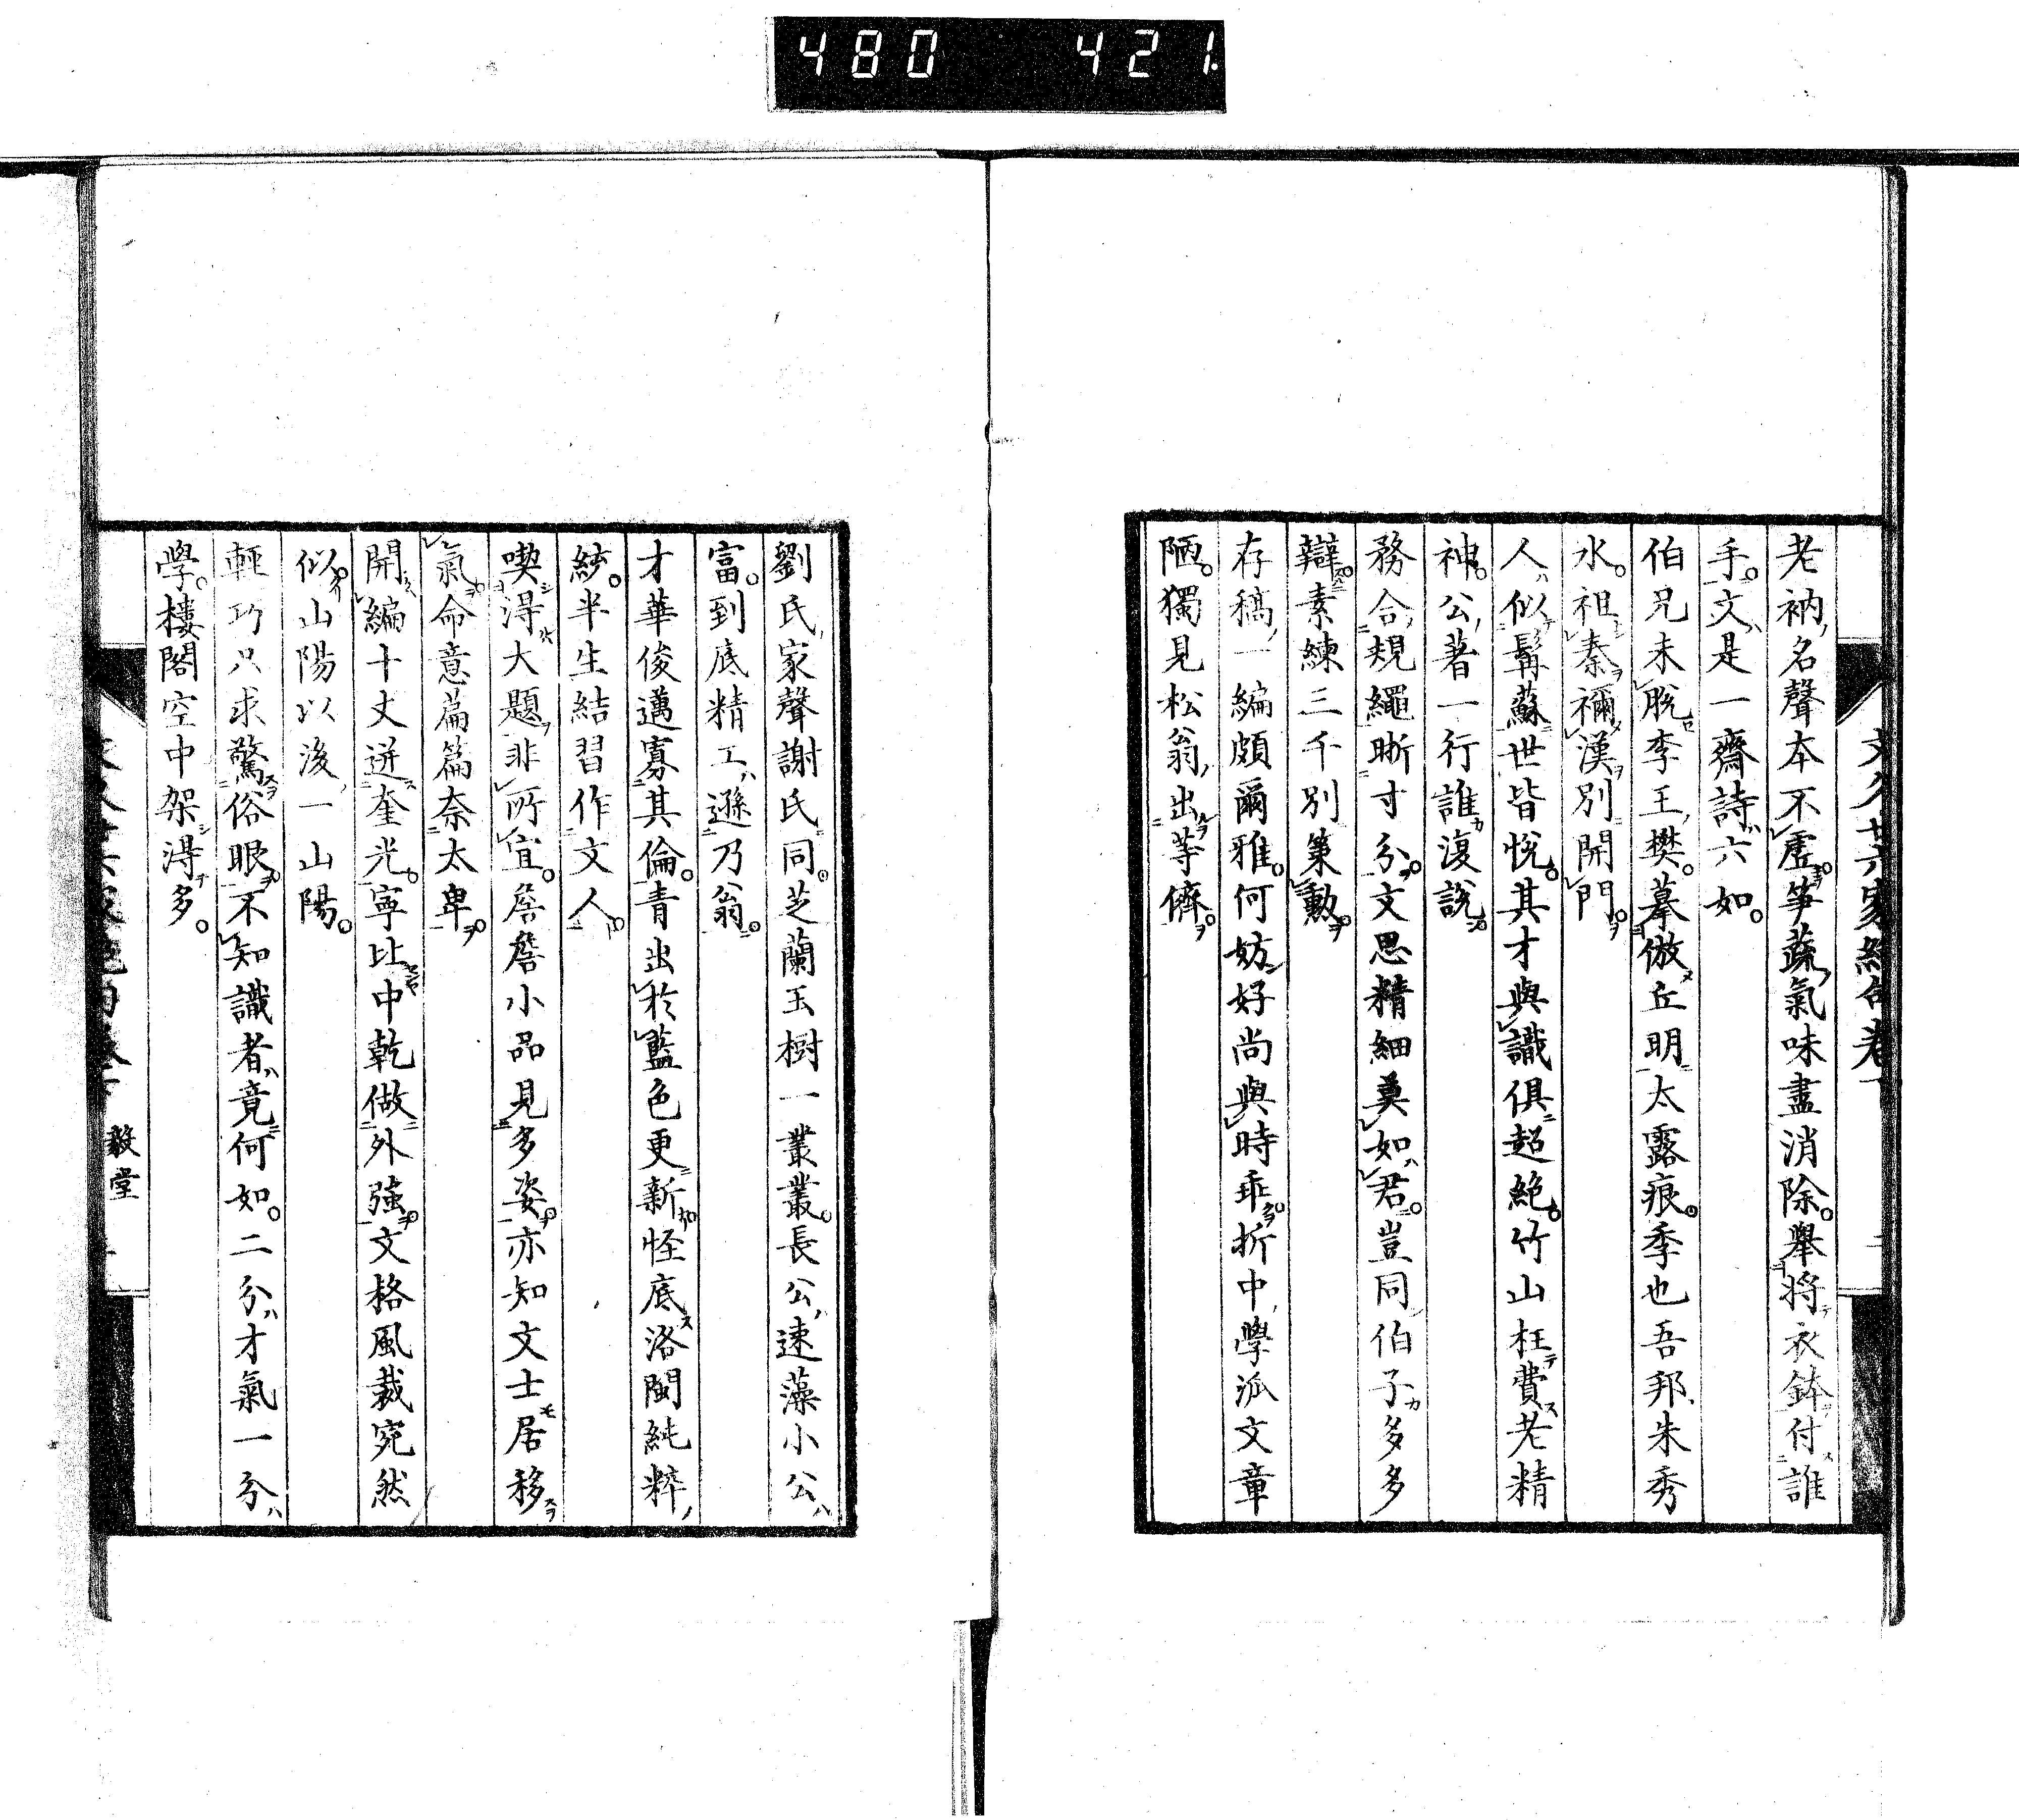 480 421
文久廿六家絶句卷下
老衲名聲本不虚筍蔬氣味盡消除舉將衣鉢付誰
手文是一齋詩六如
伯兄未脱李王樊摹倣丘明太露痕季也吾邦朱秀
水祖秦禰漢別開門
人似髯蘇世皆悦其才與識俱超絶竹山枉費老精
神公著一行誰復説
務合規繩晣寸分文思精細莫如君豈同伯子多多
辯素練三千別策勲
存稿一編頗爾雅何妨好尚與時乖折中學派文章
陋獨見松翁出等儕
劉氏家聲謝氏同芝蘭玉樹一叢叢長公速藻小公
富到底精工遜乃翁
才華俊邁寡其倫青出於藍色更新怪底洛閩純粹
紗半生結習作文人
喫得大題非所宜詹詹小品見多姿亦知文士居移
氣命意篇篇奈太卑
開編十丈迸奎光寧比中乾做外強文格風裁宛然
似山陽以後一山陽
輕巧只求驚俗眼不知識者竟何如二分才氣一分
學樓閣空中架得多
毅堂